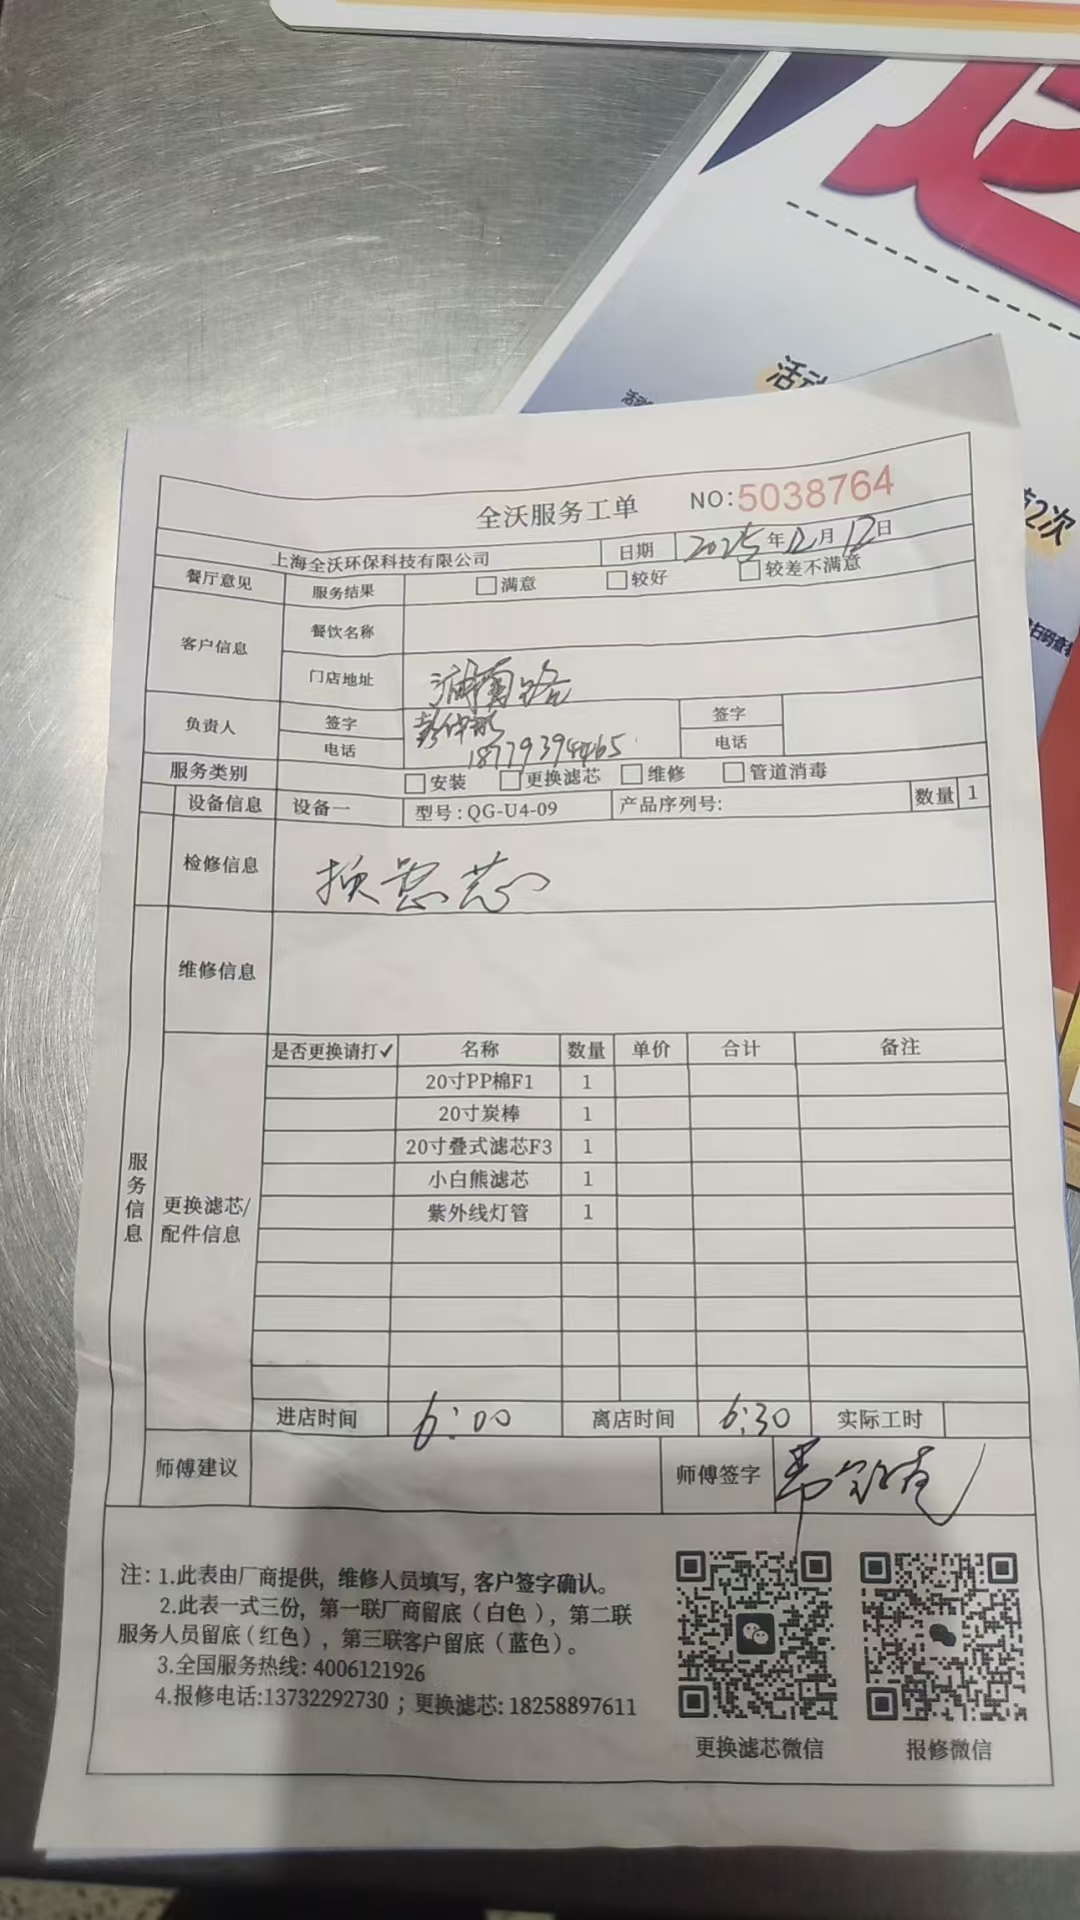 活动
2次
扫码查
全沃服务工单 NO:5038764
上海全沃环保科技有限公司 日期 2025年12月12日
餐厅意见 服务结果 □满意 □较好 □较差不满意
客户信息 餐饮名称
门店地址 浦南路
负责人 签字 签字
电话 18779394465 电话
服务类别 □安装 □更换滤芯 □维修 □管道消毒
设备信息 设备一 型号:QG-U4-09 产品序列号: 数量 1
检修信息 换滤芯
维修信息
服务信息
更换滤芯/配件信息
是否更换请打✓ 名称 数量 单价 合计 备注
20寸PP棉F1 1
20寸炭棒 1
20寸叠式滤芯F3 1
小白熊滤芯 1
紫外线灯管 1
进店时间 6:00 离店时间 6:30 实际工时
师傅建议 师傅签字
注: 1.此表由厂商提供, 维修人员填写, 客户签字确认。
2.此表一式三份, 第一联厂商留底 (白色), 第二联
服务人员留底 (红色), 第三联客户留底 (蓝色)。
3.全国服务热线: 4006121926
4.报修电话:13732292730 ; 更换滤芯: 18258897611
更换滤芯微信 报修微信